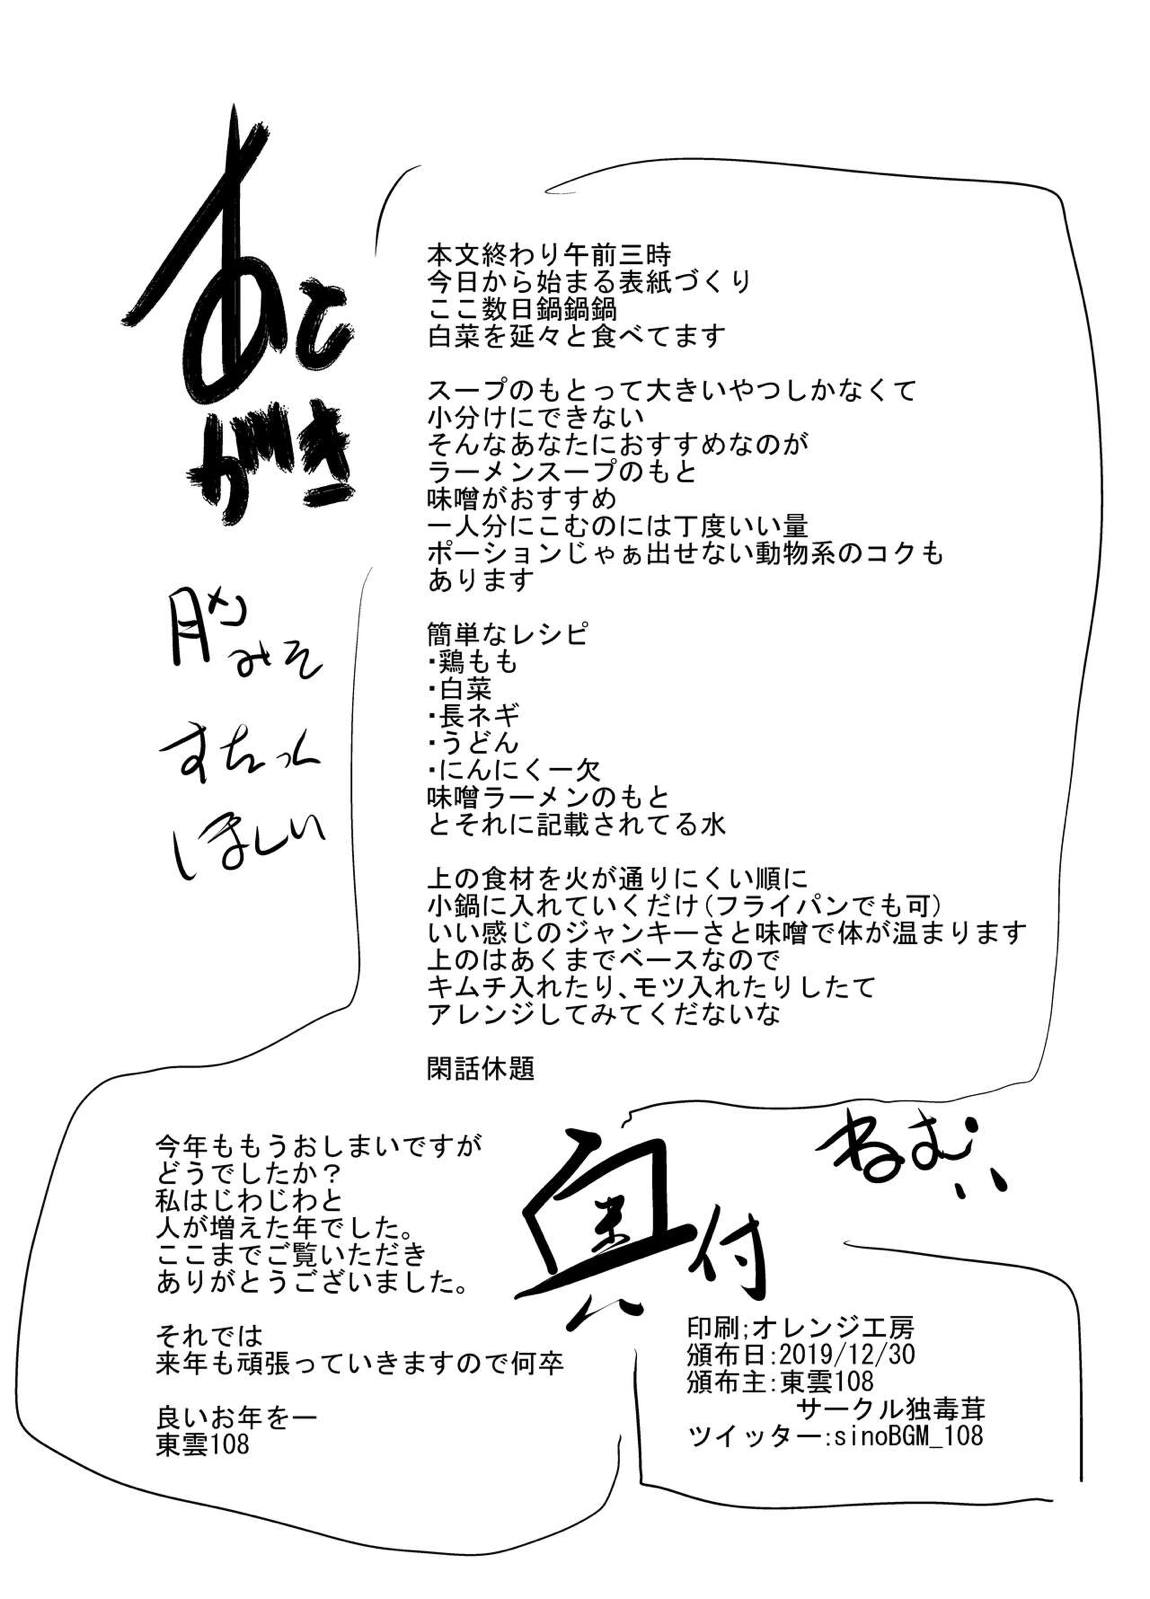 あとがき
本文終わり午前三時
今日から始まる表紙づくり
ここ数日鍋鍋鍋
白菜を延々と食べてます
スープのもとって大きいやつしかなくて
小分けにできない
そんなあなたにおすすめなのが
ラーメンスープのもと
味噌がおすすめ
一人分にこむのには丁度いい量
ポーションじゃぁ出せない動物系のコクも
あります
簡単なレシピ
・鶏もも
・白菜
・長ネギ
・うどん
・にんにく一欠
味噌ラーメンのもと
とそれに記載されてる水
上の食材を火が通りにくい順に
小鍋に入れていくだけ(フライパンでも可)
いい感じのジャンキーさと味噌で体が温まります
上のはあくまでベースなので
キムチ入れたり、モツ入れたりしたて
アレンジしてみてくだないな
閑話休題
みそ
すたっく
ほしい
ねむい
今年ももうおしまいですが
どうでしたか？
私はじわじわと
人が増えた年でした。
ここまでご覧いただき
ありがとうございました。
それでは
来年も頑張っていきますので何卒
良いお年をー
東雲108
奥付
印刷;オレンジ工房
頒布日:2019/12/30
頒布主:東雲108
サークル独毒茸
ツイッター:sinoBGM_108